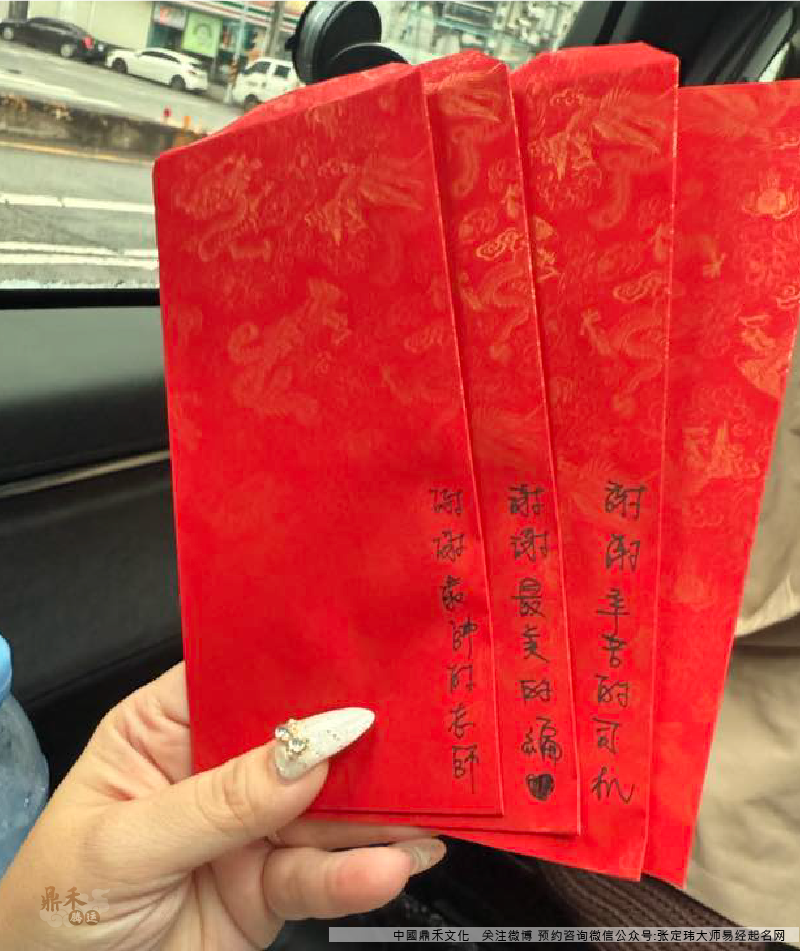 謝謝最帥的老師
謝謝最美的編
謝謝辛苦的司机
鼎禾
騰运
中國鼎禾文化 关注微博 预约咨询微信公众号:张定玮大师易经起名网